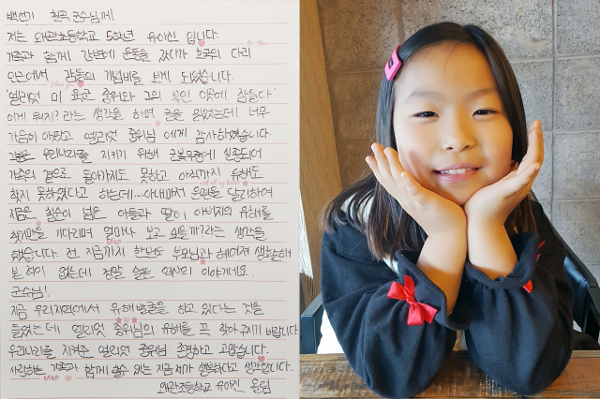 백선기 칠곡 군수님께
저는 왜관초등학교 5학년 유아진 입니다.
가족과 함께 강변에 운동을 갔다가 호국의 다리
인근에서 감동의 기념비를 보게 되었습니다.
'엘리엇 미 육군 중위와 그의 부인 이곳에 잠들다'
이게 뭐지? 라는 생각을 하며 글을 읽었는데 너무
가슴이 아팠고 엘리엇 중위님 에게 감사하였습니다.
우리나라를 지키기 위해 실종되어
가족의 곁으로 돌아가지도 못하고 아직까지 유해도
찾지 못하였다고 하는데... 아내마저 운명을 달리하여
지금은 칠순이 넘은 아들과 딸이 아버지의 유해를
찾기만을 기다리며 얼마나 보고 싶을까? 라는 생각을
했습니다. 전 지금까지 한번도 부모님과 헤어져 생활해
본 적이 없는데 정말 슬픈 역사의 이야기네요.
군수님!
지금 우리지역에서 유해발굴을 하고 있다는 것을
들었는데 엘리엇 중위님의 유해를 꼭 찾아주기 바랍니다
우리나라를 지켜준 엘리엇 중위님 존경하고 고맙습니다.
사랑하는 가족과 함께 할수 있는 지금 제가 행복하다고 생각합니다.
왜관초등학교 유아진 올림